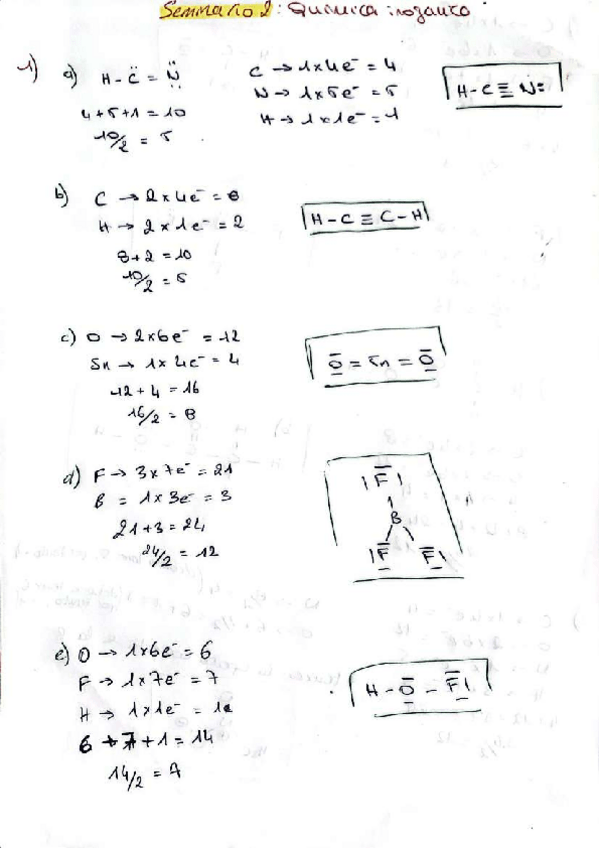 Seminario 2: Química inorgánica
1)
a) H - C̈ = N̈
4+5+1=10
10/2 = 5
C → 1x4e⁻ = 4
N → 1x5e⁻ = 5
H → 1x1e⁻ = 1
H-C≡N:
b) C → 2x4e⁻ = 8
H → 2x1e⁻ = 2
8+2 = 10
10/2 = 5
H-C≡C-H
c) O → 2x6e⁻ = 12
Sn → 1x4e⁻ = 4
12+4 = 16
16/2 = 8
O = Sn = O
d) F → 3x7e⁻ = 21
B = 1x3e⁻ = 3
21+3 = 24
24/2 = 12
|F|
B
|F F|
e) O → 1x6e⁻ = 6
F → 1x7e⁻ = 7
H → 1x1e⁻ = 1e
6+7+1 = 14
14/2 = 7
H - O - F|